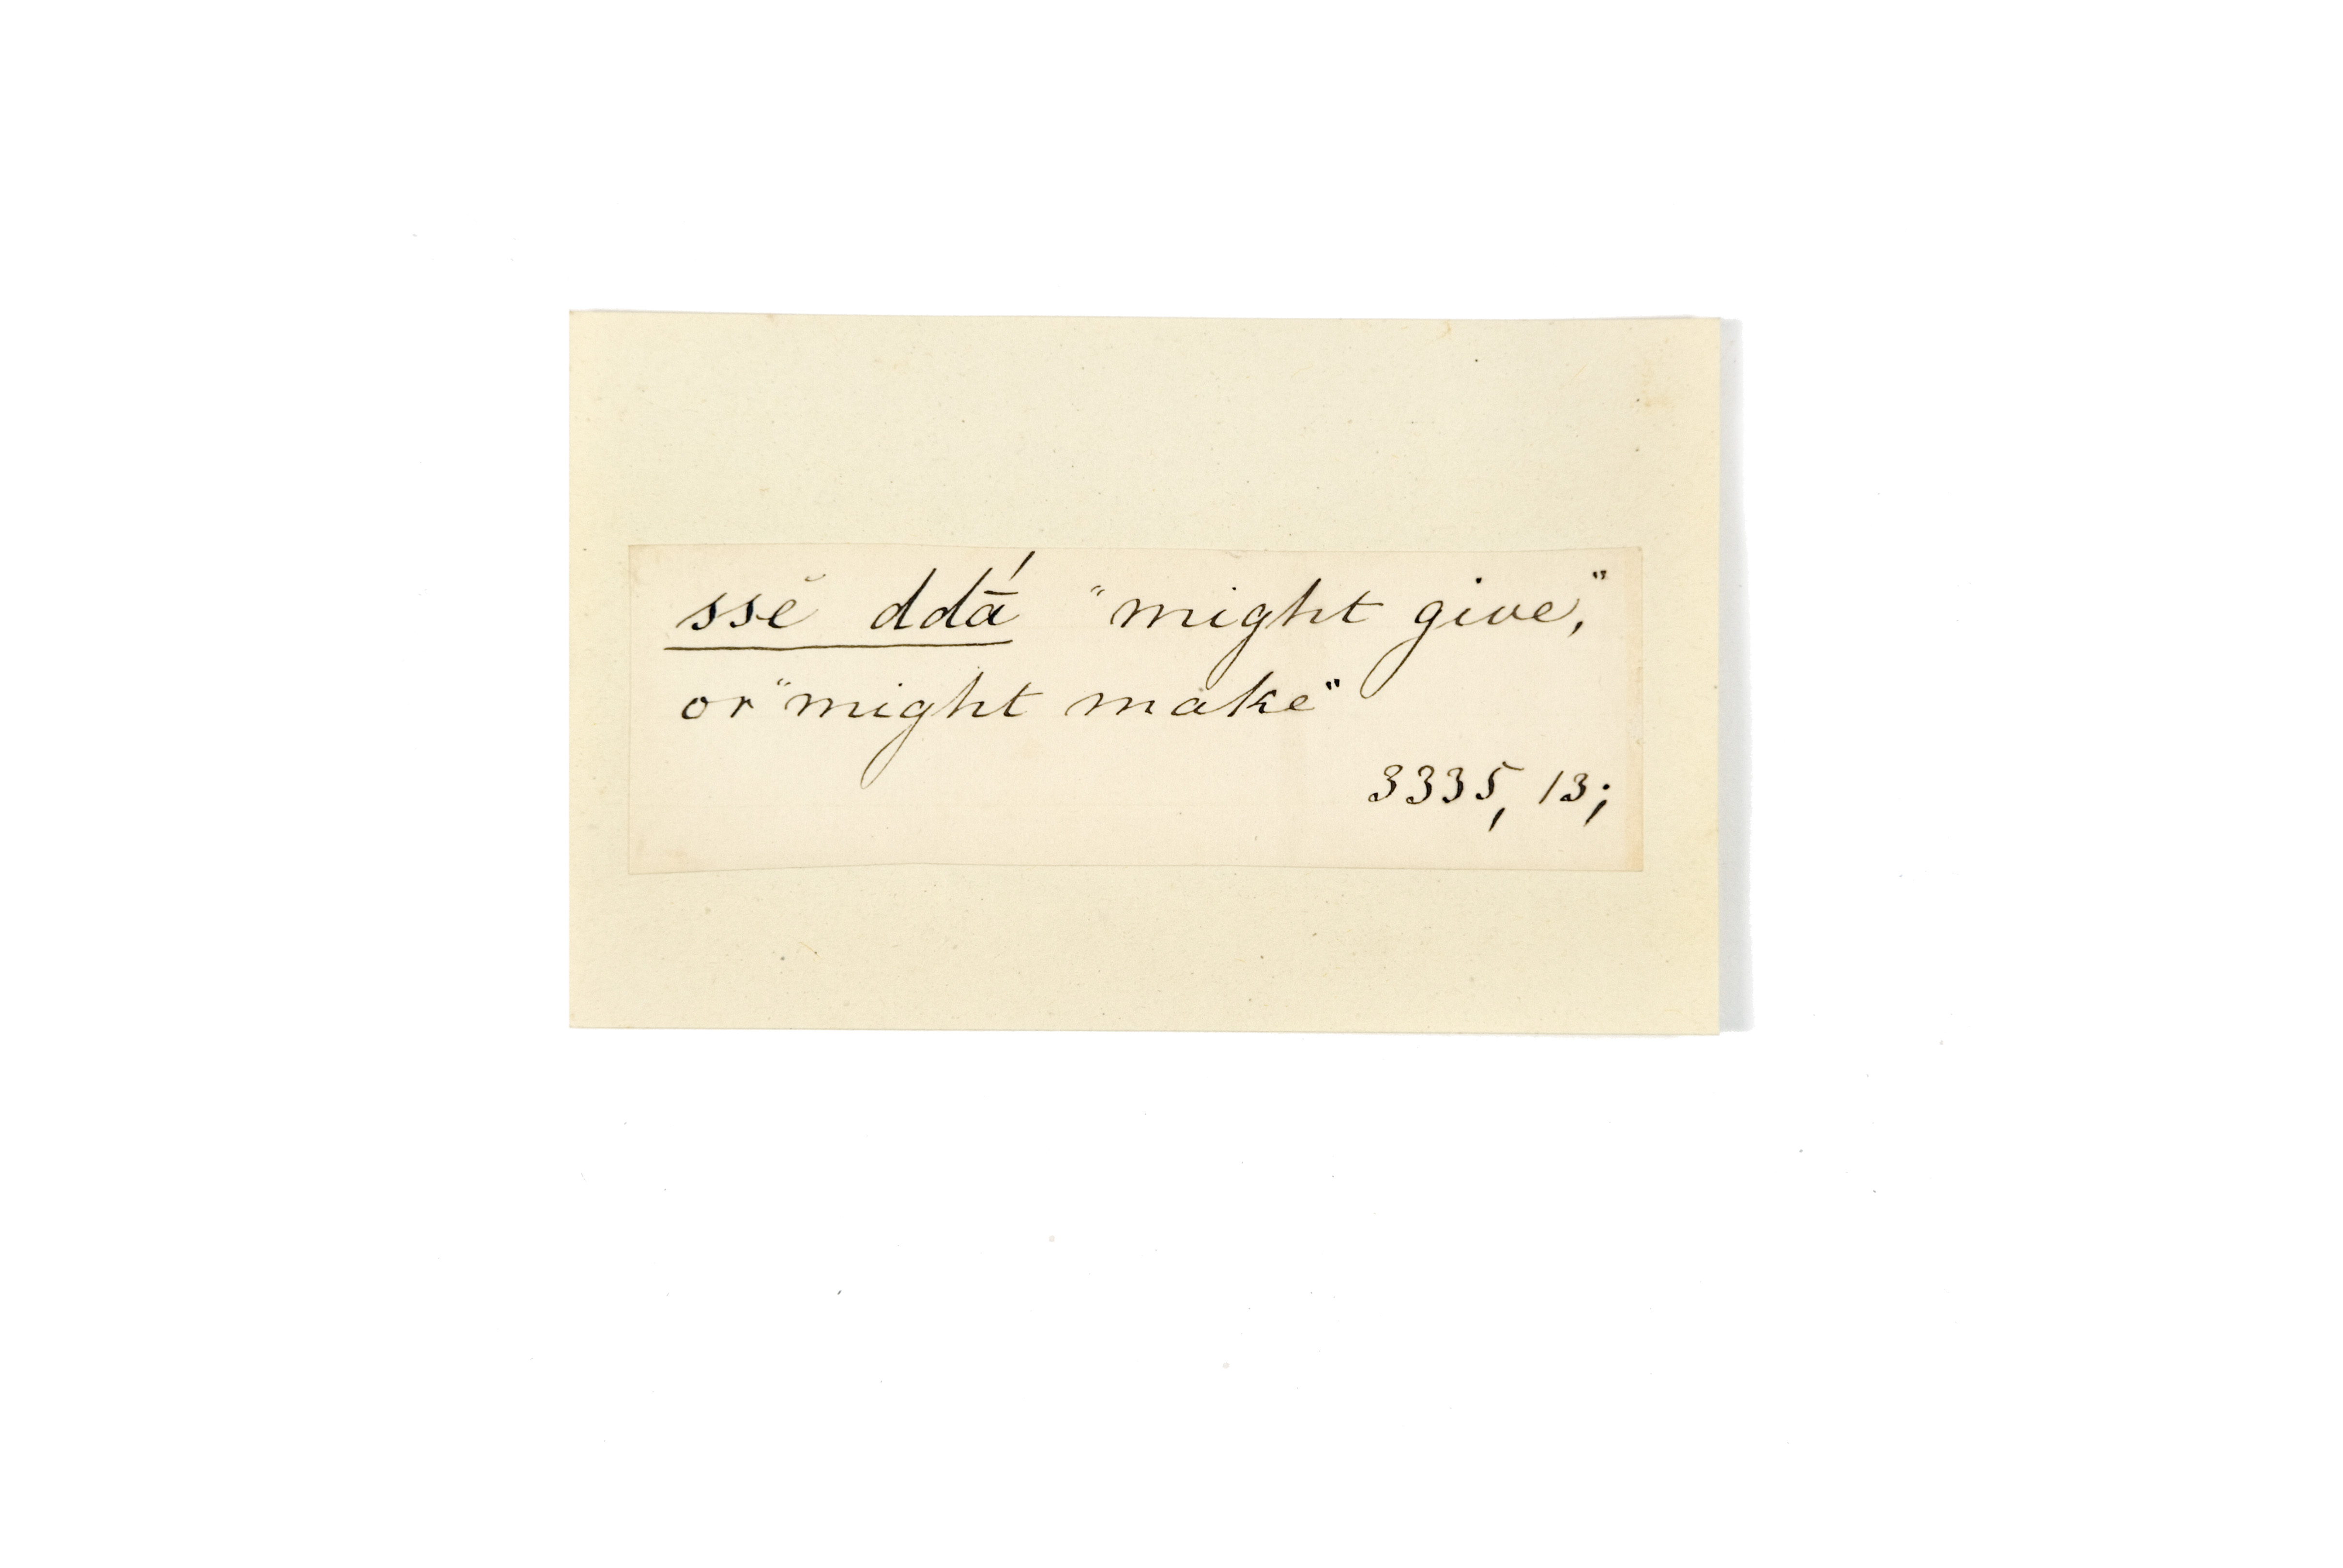 ssĕ ddā́ "might give,"
or "might make"
3335, 13;